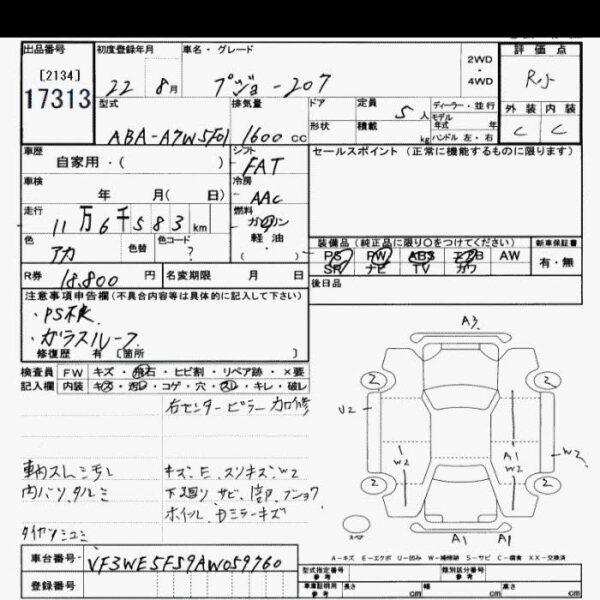 出品番号 初度登録年月 車名・グレード 2WD ・ 4WD 評価点
[2134] 17313 22 8月 プジョー207 R.5
型式 排気量 ドア 定員 5人 ディーラー・並行 外装 内装
ABA-A7W5F01 1600cc 形状 積載 kg モデル年式 年 ハンドル 左・右 C C
車歴 シフト セールスポイント (正常に機能するものに限ります)
自家用・( ) FAT
車検 冷房
年 月( 日) AAC
走行 燃料
11万6千583km ガソリン
色 色替 色コード 軽油 装備品 (純正品に限り○をつけてください) 新車保証書
アカ ? ・ PS PW ABS エアB AW 有・無
SR ナビ TV カワ
R券 18,800円 名変期限 月 日 後日品
注意事項申告欄 (不具合内容等は具体的に記入して下さい)
・PS不良
・ガラスルーフ
修復歴 有 [箇所 ]
検査員 FW キズ・飛石・ヒビ割・リペア跡・×要
記入欄 内装 キズ・汚レ・コゲ・穴・スレ・キレ・破レ
右センターピラー加修
車内スレ汚レ キズ、E、スリキズ、W2
内バリ、タルミ 下廻り サビ、
ホイル、Dミラーキズ
A3
2 2
U2 A1 W2
W2 W2
2 2
スペア A1 A1
A-キズ E-エクボ U-凹み W-補修跡 S-サビ C-腐食 XX-交換済
車台番号 VF3WE5FS9AW059760 型式指定番号 参考 類別区分番号 参考
登録番号 車車証明用 参考 長さ cm 幅 cm 高さ cm